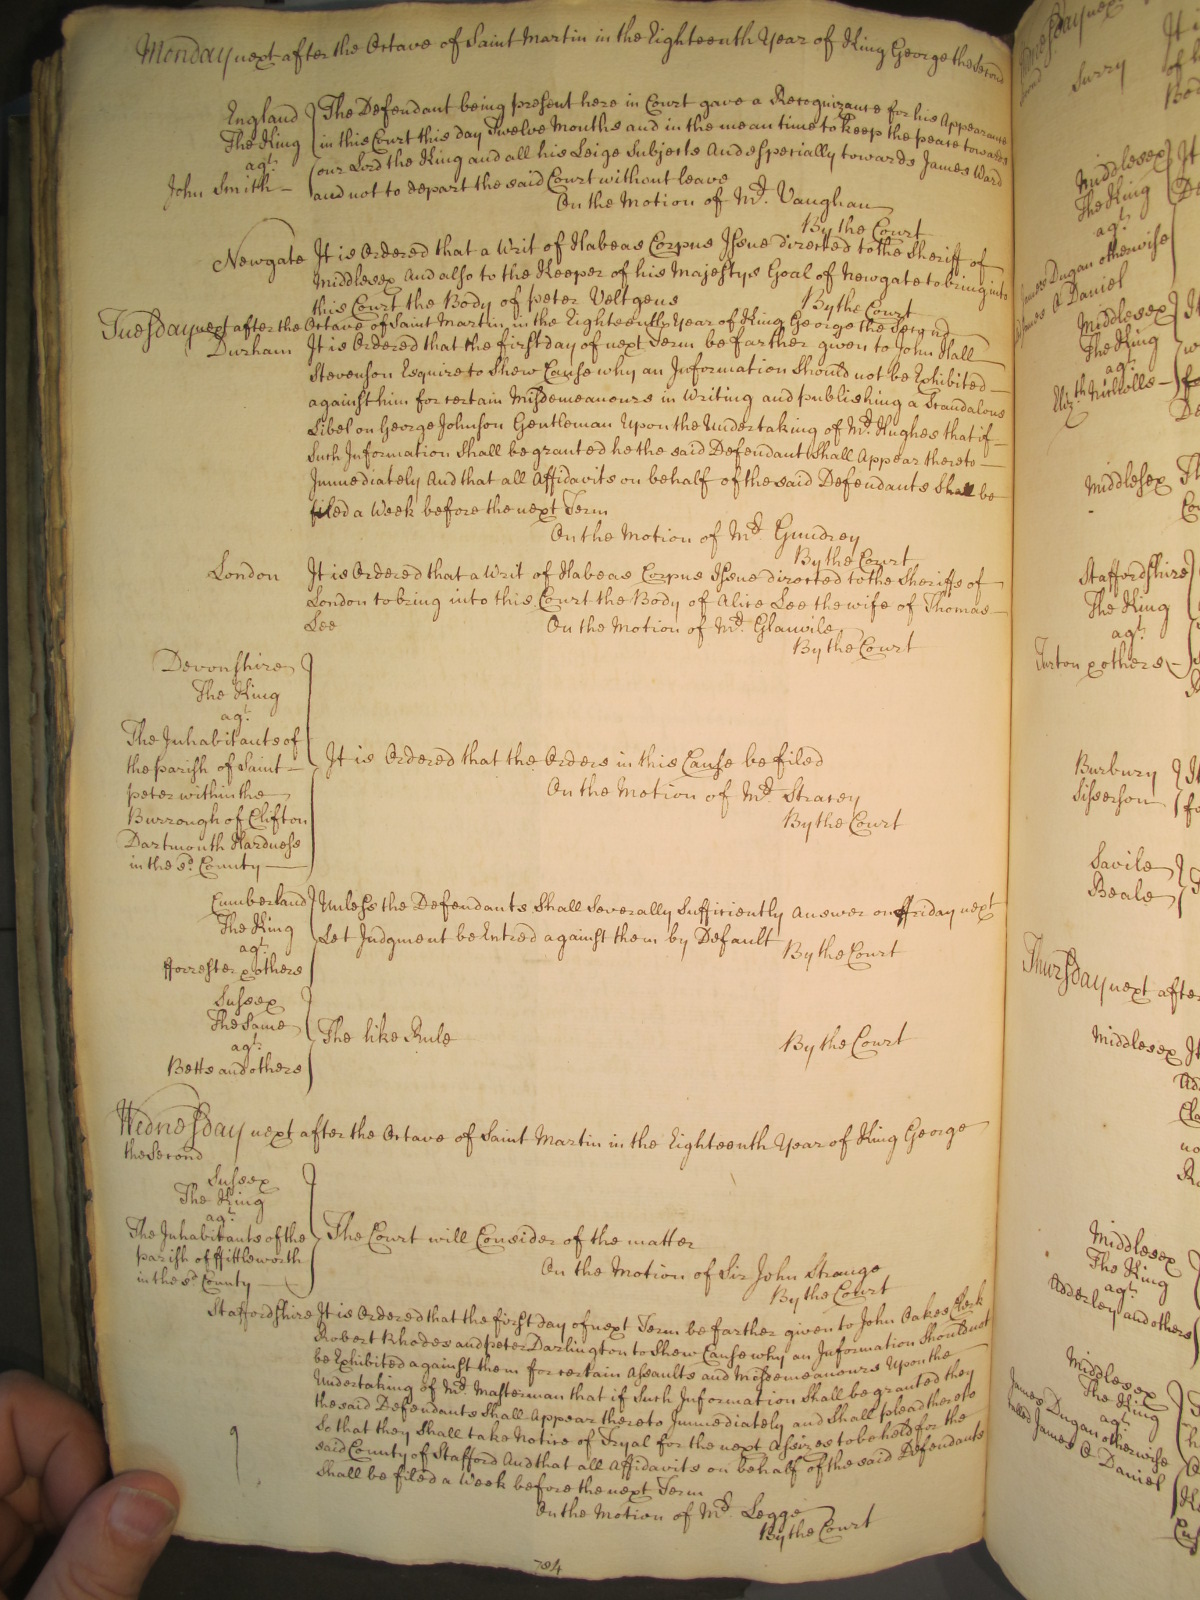 Monday next after the Octave of Saint Martin in the Eighteenth Year of King George the Second
England
The King
agt.
John Smith
The Defendant being present here in Court gave a Recognizance for his Appearance
in this Court this day Twelve Months and in the mean time to keep the peace towards
our Lord the King and all his Leige Subjects And especially towards James Ward
and not to depart the said Court without leave
On the Motion of Mr. Vaughan
By the Court
Newgate
It is Ordered that a Writ of Habeas Corpus Issue directed to the Sheriff of
Middlesex And also to the Keeper of his Majestys Goal of Newgate to bring into
this Court the Body of peter Veltgens
By the Court
Tuesday next after the Octave of Saint Martin in the Eighteenth Year of King George the Second
Durham
It is Ordered that the first day of next Term be farther given to John Hall
Stevenson Esquire to Shew Cause why an Information Should not be Exhibited
against him for certain Misdemeanours in Writing and publishing a Scandalous
Libel on George Johnson Gentleman Upon the Undertaking of Mr. Hughes that if
Such Information Shall be granted he the said Defendant Shall Appear thereto
Immediately And that all Affidavits on behalf of the said Defendants Shall be
filed a Week before the next Term
On the Motion of Mr. Gundrey
By the Court
London
It is Ordered that a Writ of Habeas Corpus Issue directed to the Sheriffs of
London to bring into this Court the Body of Alice Lee the wife of Thomas
Lee
On the Motion of Mr. Glanvile
By the Court
Devonshire
The King
agt.
The Inhabitants of
the parish of Saint
peter within the
Burrough of Clifton
Dartmouth Hardness
in the sd. County
It is Ordered that the Orders in this Cause be filed
On the Motion of Mr. Stracey
By the Court
Cumberland
The King
agt.
fforrester & others
Unless the Defendants Shall Severally Sufficiently Answer on ffriday next
Let Judgment be Entred against them by Default
By the Court
Sussex
The Same
agt.
Betts and others
The like Rule
By the Court
Wednesday next after the Octave of Saint Martin in the Eighteenth Year of King George
the Second
Sussex
The King
agt.
The Inhabitants of the
parish of ffittleworth
in the sd. County
The Court will Consider of the matter
On the Motion of Sir John Strange
By the Court
Staffordshire
It is Ordered that the first day of next Term be farther given to John Oakes Clerk
Robert Rhodes and peter Darlington to Shew Cause why an Information Should not
be Exhibited against them for certain Assaults and Misdemeanours Upon the
Undertaking of Mr. Masterman that if Such Information Shall be granted they
the said Defendants Shall Appear thereto Immediately and Shall plead thereto
So that they Shall take Notice of Tryal for the next Assizes to be held for the
said County of Stafford And that all Affidavits on behalf of the said Defendants
Shall be filed a Week before the next Term
On the Motion of Mr. Legge
By the Court
784
Surry
Middlesex
The King
agt.
James Dugan otherwise
James O Daniel
Middlesex
The King
agt.
Elizth. Nicholls
Middlesex
Staffordshire
The King
agt.
Turton & others
Burbury
Sisserson
Savile
Beale
Thursday next after
Middlesex
Middlesex
The King
agt.
Adderley and others
Middlesex
The King
agt.
James Dugan otherwise
called James O Daniel